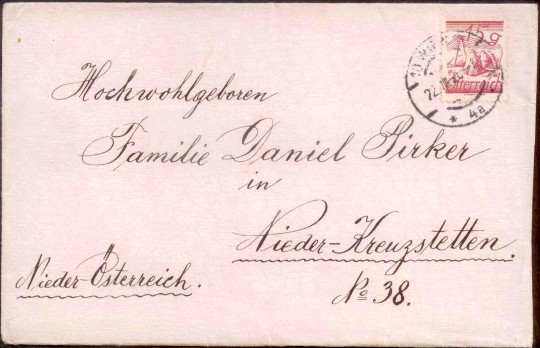 15g
Österreich
* 4a
Hochwohlgeboren
Familie Daniel Pirker
in
Nieder-Kreuzstetten.
Nieder-Österreich.
No 38.